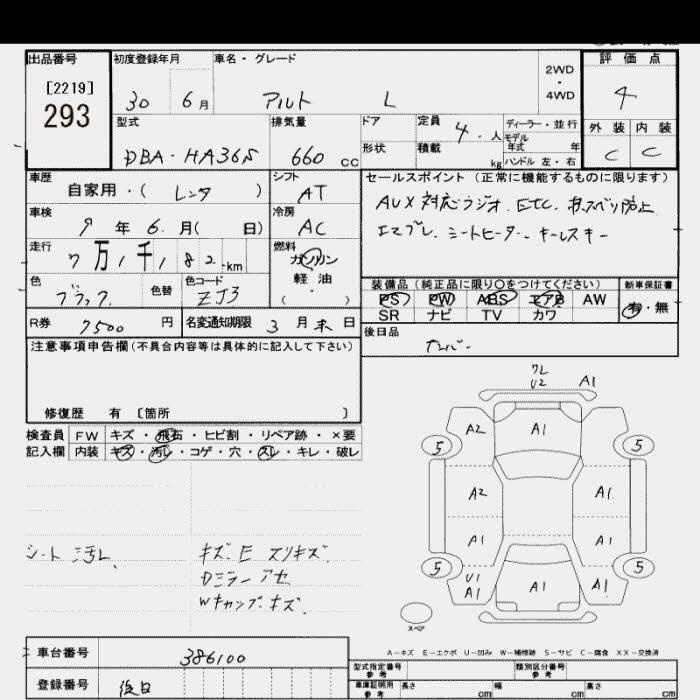 出品番号 初度登録年月 車名・グレード 評価点
[2219] 2WD
293 ・ 4WD
30 6月 アルト L 4
型式 排気量 ドア 定員 4.人 ディーラー・並行 外装 内装
モデル年式 年
DBA-HA36S 660cc 形状 積載 kg ハンドル 左・右 C C
車歴 シフト セールスポイント(正常に機能するものに限ります)
自家用・( レンタ ) AT AUX対応ラジオ.ETC.
車検 冷房
9年6月( 日) AC シートヒーター.キーレスキー
走行 燃料
7万1千182-km ガソリン
色 色替 色コード 軽油 装備品(純正品に限り○をつけてください) 新車保証書
ブラック ZJ3 ( ・ ) PS PW ABS エアB AW 有・無
SR ナビ TV カワ
R券 7500円 名変通知期限 3月末日 後日品
注意事項申告欄(不具合内容等は具体的に記入して下さい)
修復歴 有 [箇所 ]
ワレ
U2 A1
検査員 FW キズ・飛石・ヒビ割・リペア跡・×要
記入欄 内装 キズ・汚レ・コゲ・穴・スレ・キレ・破レ
A2 A1
5 5
A2 A1
A1 A1
5 5
U1
A1 A1 A1
シート汚レ、 キズ.E スリキズ.
Dミラーアセ
Wキャップキズ.
スペア
A-キズ E-エクボ U-凹み W-補修跡 S-サビ C-腐食 XX-交換済
車台番号 386100 型式指定番号 参考 類別区分番号 参考
登録番号 後日 車庫証明用 参考 長さ cm 幅 cm 高さ cm